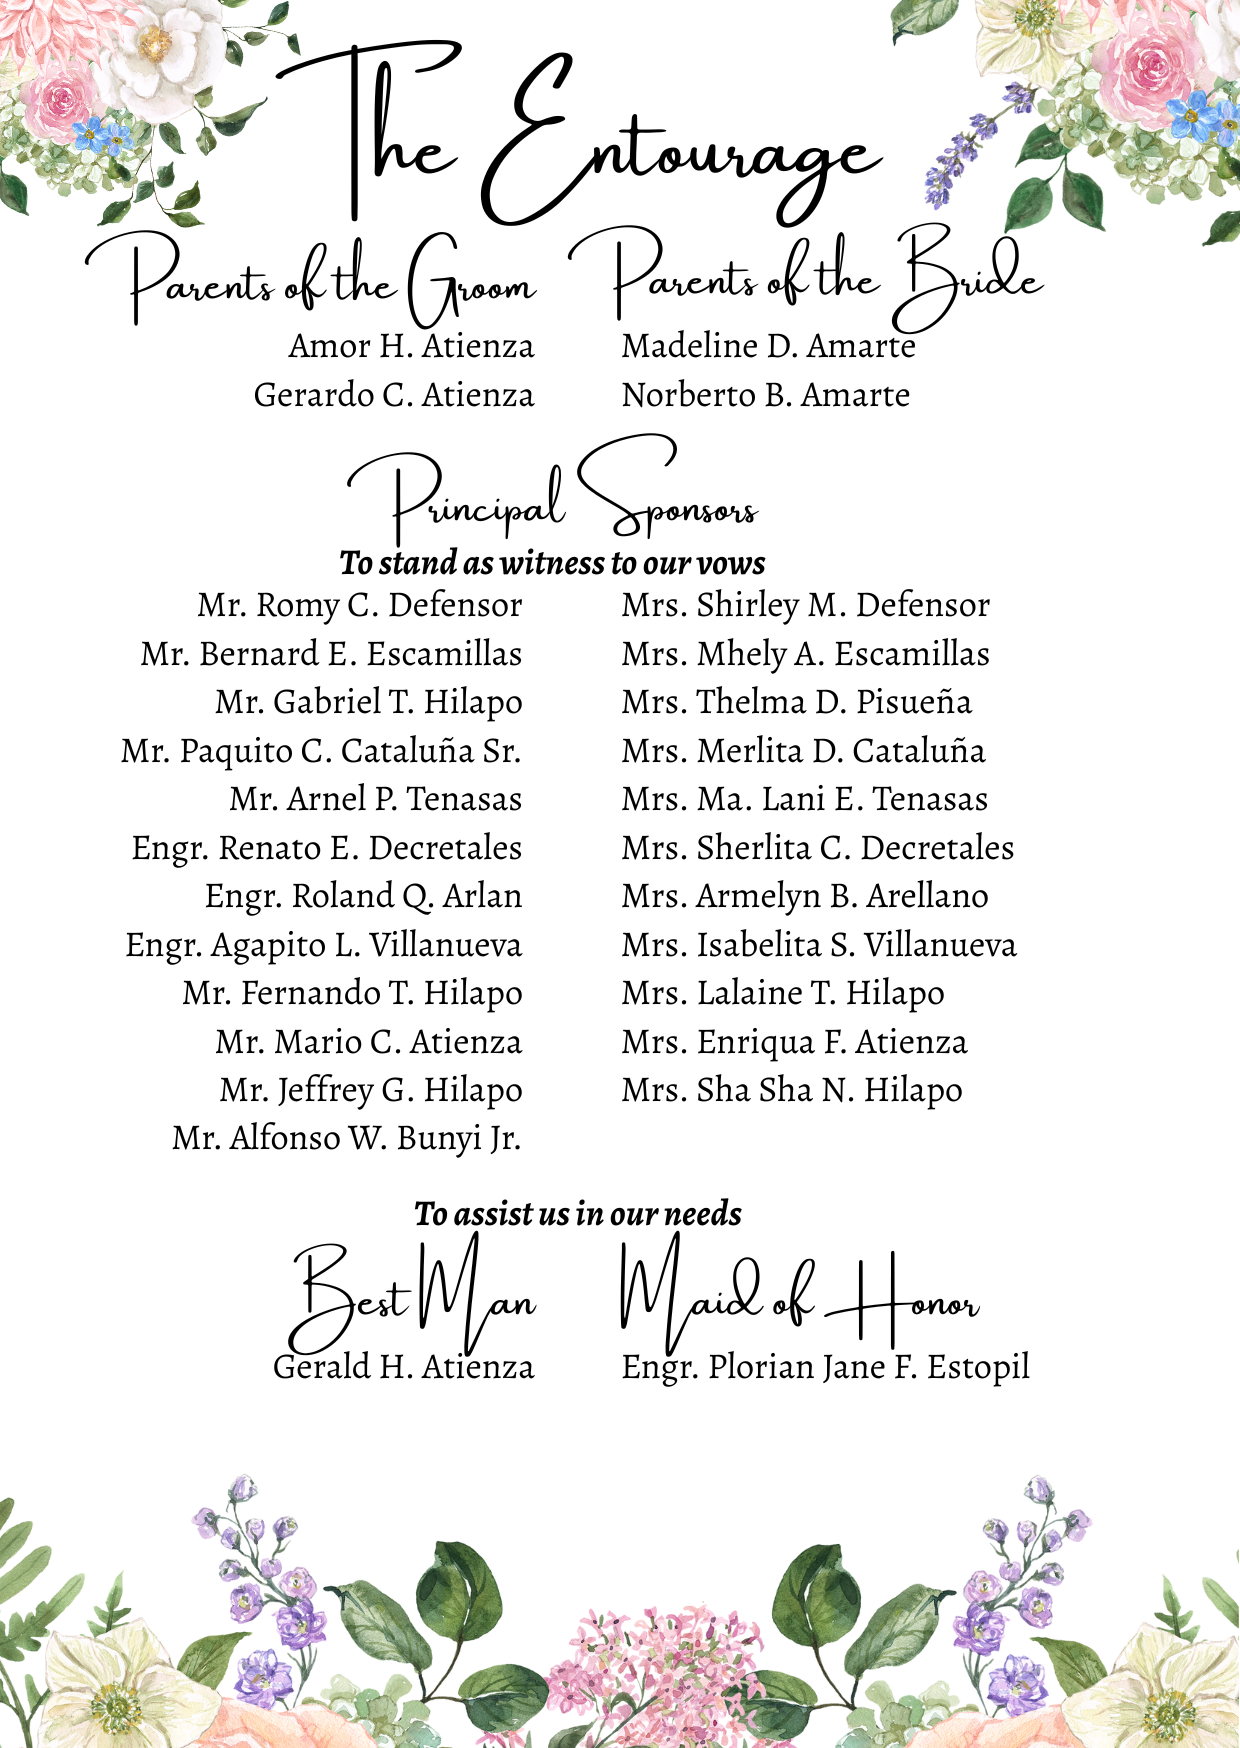 The Entourage
Parents of the Groom
Amor H. Atienza
Gerardo C. Atienza
Parents of the Bride
Madeline D. Amarte
Norberto B. Amarte
Principal Sponsors
To stand as witness to our vows
Mr. Romy C. Defensor
Mr. Bernard E. Escamillas
Mr. Gabriel T. Hilapo
Mr. Paquito C. Cataluña Sr.
Mr. Arnel P. Tenasas
Engr. Renato E. Decretales
Engr. Roland Q. Arlan
Engr. Agapito L. Villanueva
Mr. Fernando T. Hilapo
Mr. Mario C. Atienza
Mr. Jeffrey G. Hilapo
Mr. Alfonso W. Bunyi Jr.
Mrs. Shirley M. Defensor
Mrs. Mhely A. Escamillas
Mrs. Thelma D. Pisueña
Mrs. Merlita D. Cataluña
Mrs. Ma. Lani E. Tenasas
Mrs. Sherlita C. Decretales
Mrs. Armelyn B. Arellano
Mrs. Isabelita S. Villanueva
Mrs. Lalaine T. Hilapo
Mrs. Enriqua F. Atienza
Mrs. Sha Sha N. Hilapo
To assist us in our needs
Best Man
Gerald H. Atienza
Maid of Honor
Engr. Plorian Jane F. Estopil